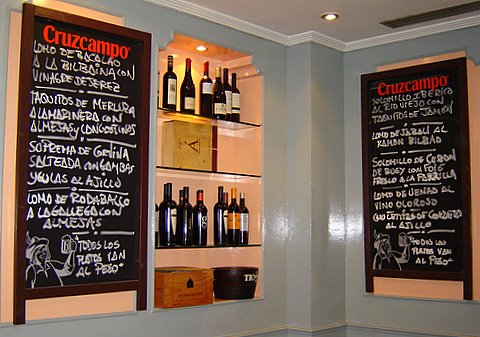 Cruzcampo
LOMO DE BACALAO
A LA BILBAINA CON
VINAGRE DE JEREZ
TAQUITOS DE MERLUZA
A LA MARINERA CON
ALMEJAS Y LANGOSTINOS
SUPREMA DE CORVINA
SALTEADA CON GAMBAS
Y GULAS AL AJILLO
LOMO DE RODABALLO
A LA GALLEGA CON
ALMEJAS
TODOS LOS
PLATOS VAN
AL PESO
A
Cruzcampo
SOLOMILLO IBERICO
AL RIO VIEJO CON
TAQUITOS DE JAMÓN
LOMO DE JABALI AL
RAMON BILBAO
SOLOMILLO DE CEBON
DE BUEY CON FOIE
FRESCO A LA PARRILLA
LOMO DE VENAO AL
VINO OLOROSO
CHULETITAS DE CORDERO
AL AJILLO
TODOS LOS
PLATOS VAN
AL PESO